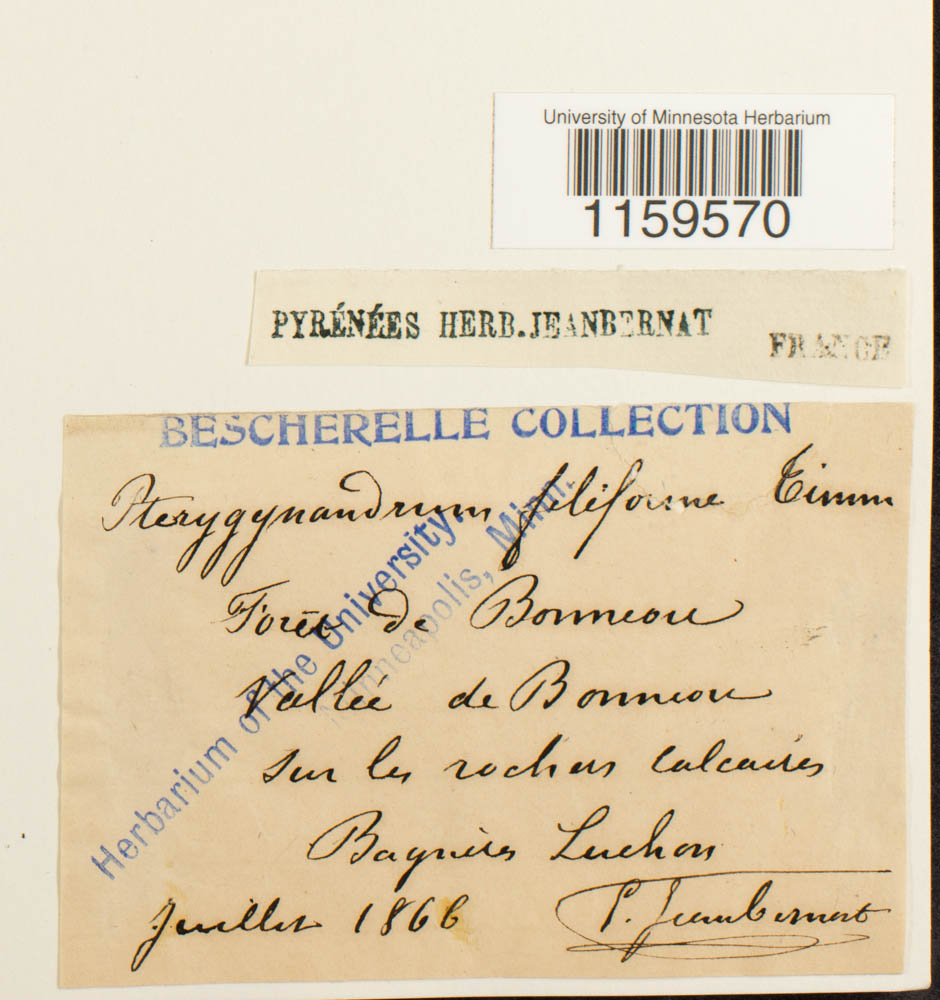 University of Minnesota Herbarium
1159570
PYRÉNÉES HERB. JEANBERNAT
FRANCE
BESCHERELLE COLLECTION
Pterygynandrum filiforme Timm
Forêt de Bonneou
Vallée de Bonneou
sur les rochers calcaires
Bagnères Luchon
Juillet 1866 P. Jeanbernat
Herbarium of the University.
Minneapolis, Minn.